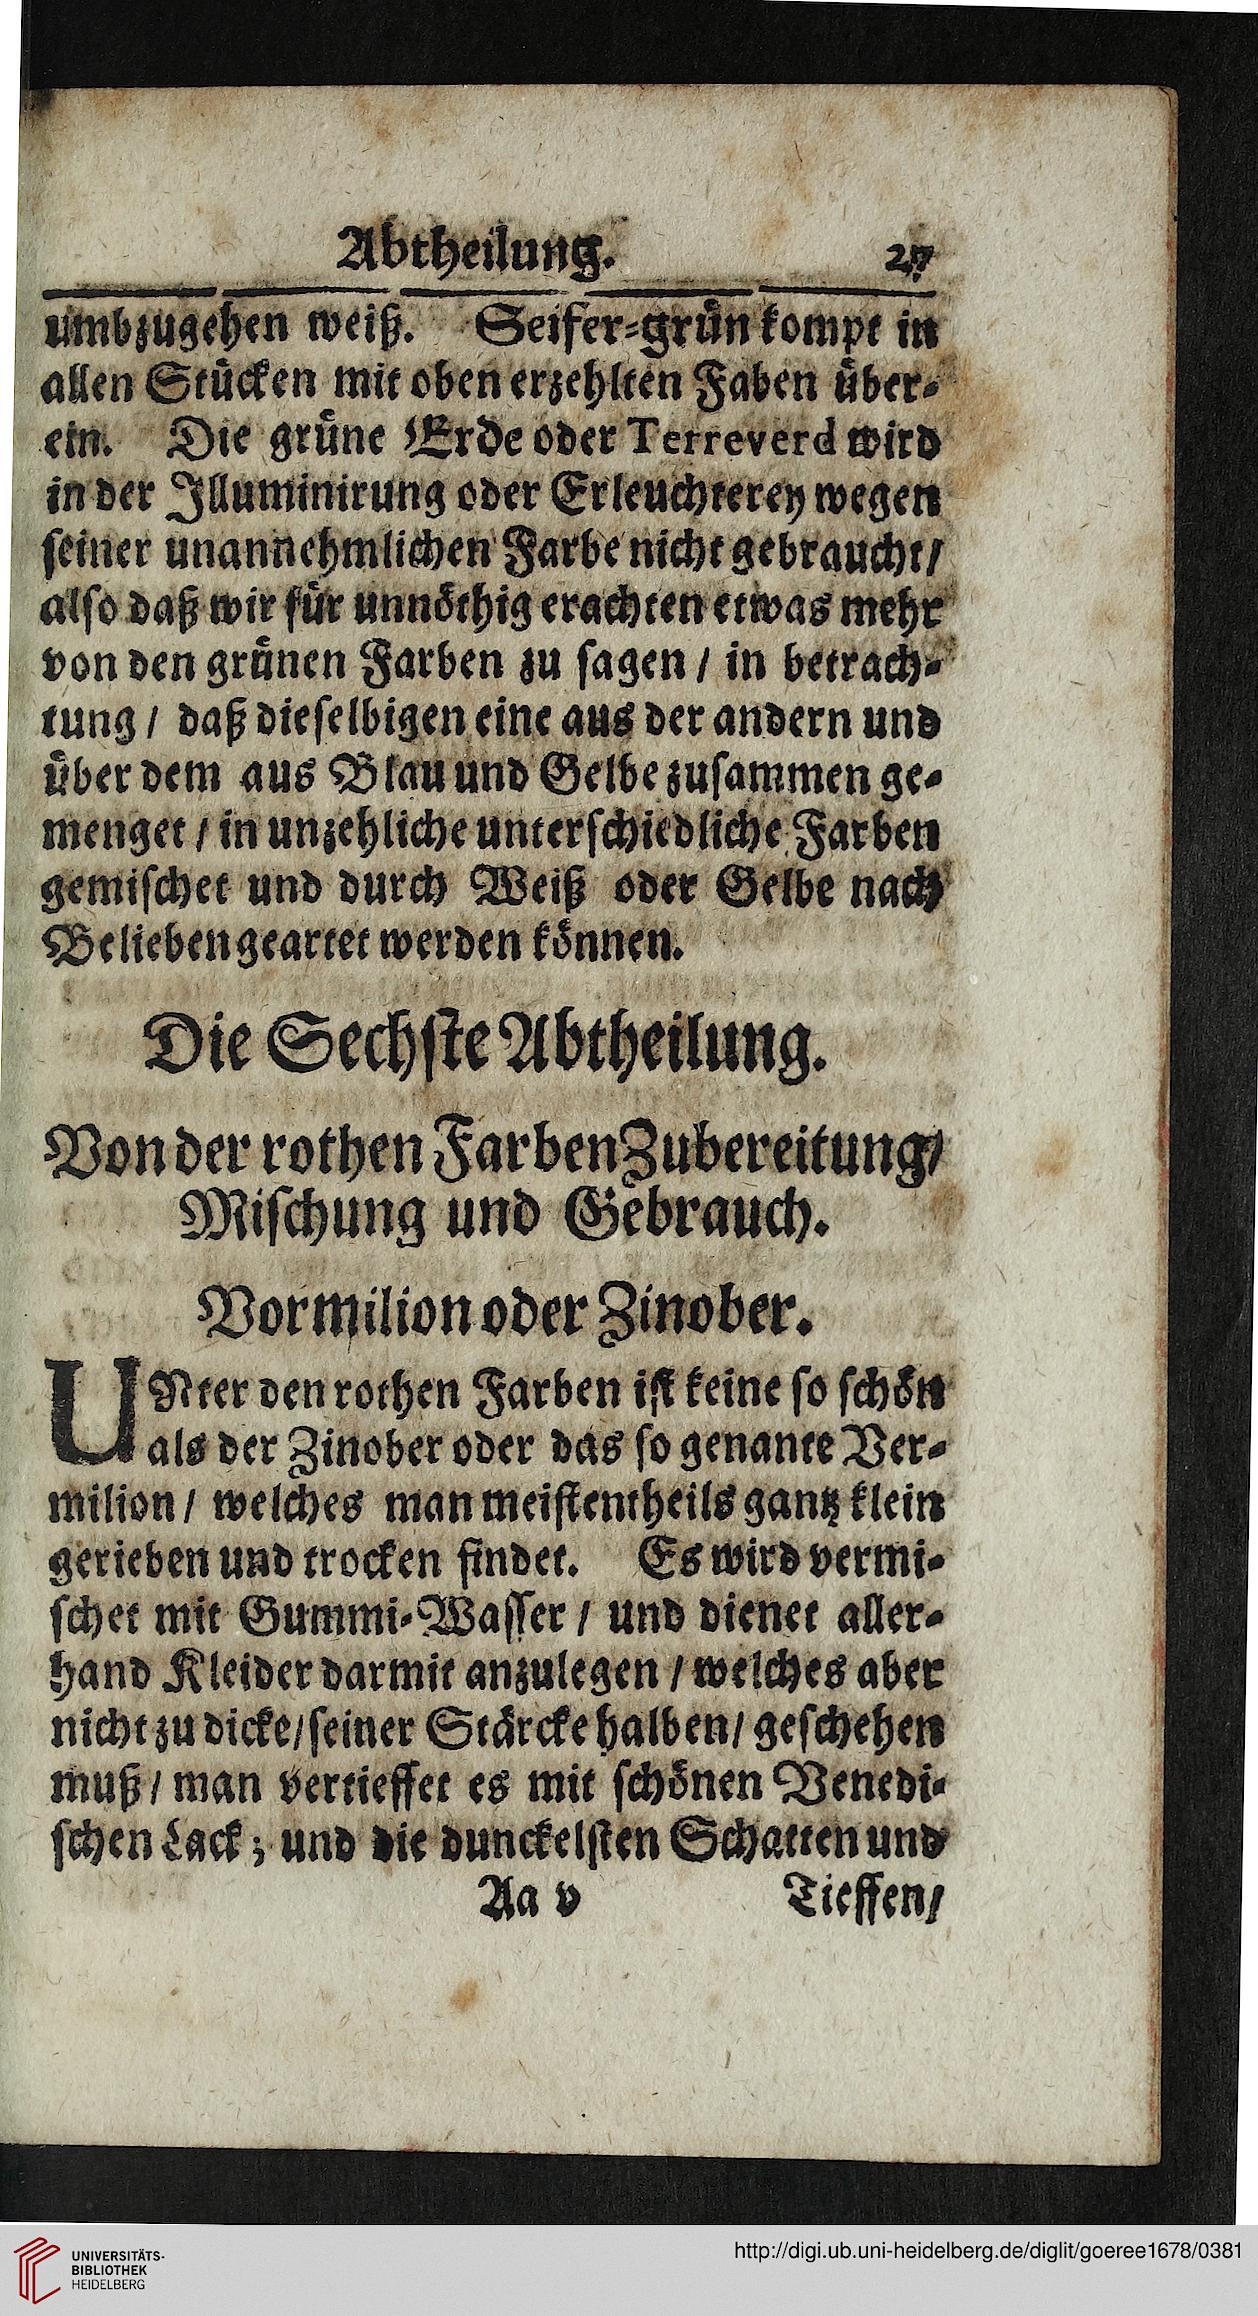 Abtheilung. 27
umbzugehen weiß. Seifer-grün kompt in
allen Stücken mit oben erzehlten Faben über-
ein. Die grüne Erde oder Terreverd wird
in der Illuminirung oder Erleuchterey wegen
seiner unannehmlichen Farbe nicht gebraucht/
also daß wir für unnöthig erachten etwas mehr
von den grünen Farben zu sagen / in betrach-
tung / daß dieselbigen eine aus der andern und
über dem aus Blau und Gelbe zusammen ge-
menget / in unzehliche unterschiedliche Farben
gemischet und durch Weiß oder Gelbe nach
Belieben geartet werden können.
Die Sechste Abtheilung.
Von der rothen Farben Zubereitung/
Mischung und Gebrauch.
Vormilion oder Zinober.
UNter den rothen Farben ist keine so schön
als der Zinober oder das so genante Ver-
milion / welches man meistentheils gantz klein
gerieben und trocken findet. Es wird vermi-
schet mit Gummi-Wasser / und dienet aller-
hand Kleider darmit anzulegen / welches aber
nicht zu dicke/ seiner Stärcke halben/ geschehen
muß / man vertieffet es mit schönen Venedi-
schen Lack; und die dunckelsten Schatten und
Aa v Tieffen/
UNIVERSITÄTS-
BIBLIOTHEK
HEIDELBERG
http://digi.ub.uni-heidelberg.de/diglit/goeree1678/0381